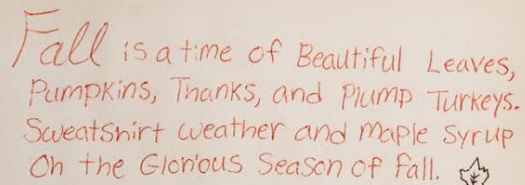 Fall is a time of Beautiful Leaves,
Pumpkins, Thanks, and Plump Turkeys.
Sweatshirt weather and maple syrup
Oh the Glorious Season of Fall.